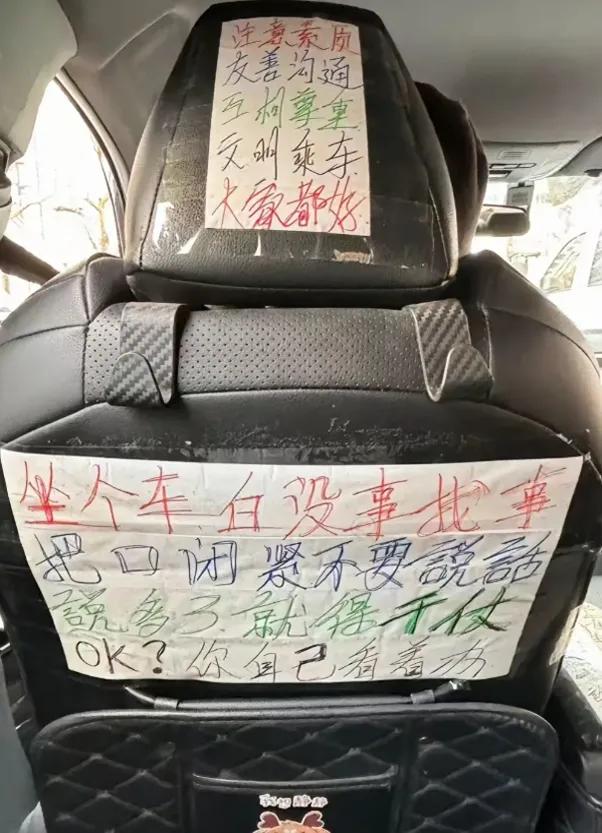 注意素质
友善沟通
互相尊重
文明乘车
大家都好
坐个车 白没事找事
把口闭紧不要説話
説多了就保干仗
OK？你自己看着办
我想静静